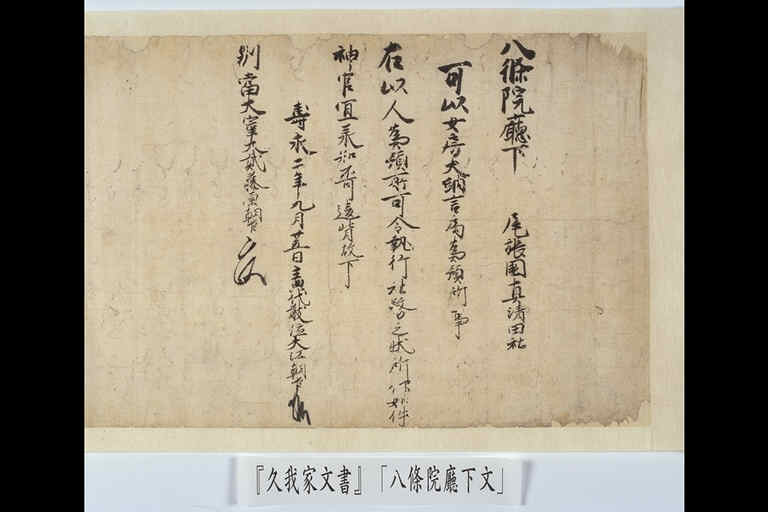 八條院廳下　尾張國真清田社
可以女房大納言局為預所事
右以人為預所可令執行社務之狀所仰如件
神官宜承知不可違背故下
壽永二年九月廿五日主典代散位大江朝臣
別當大宰大貳藤原朝臣
『久我家文書』「八條院廳下文」